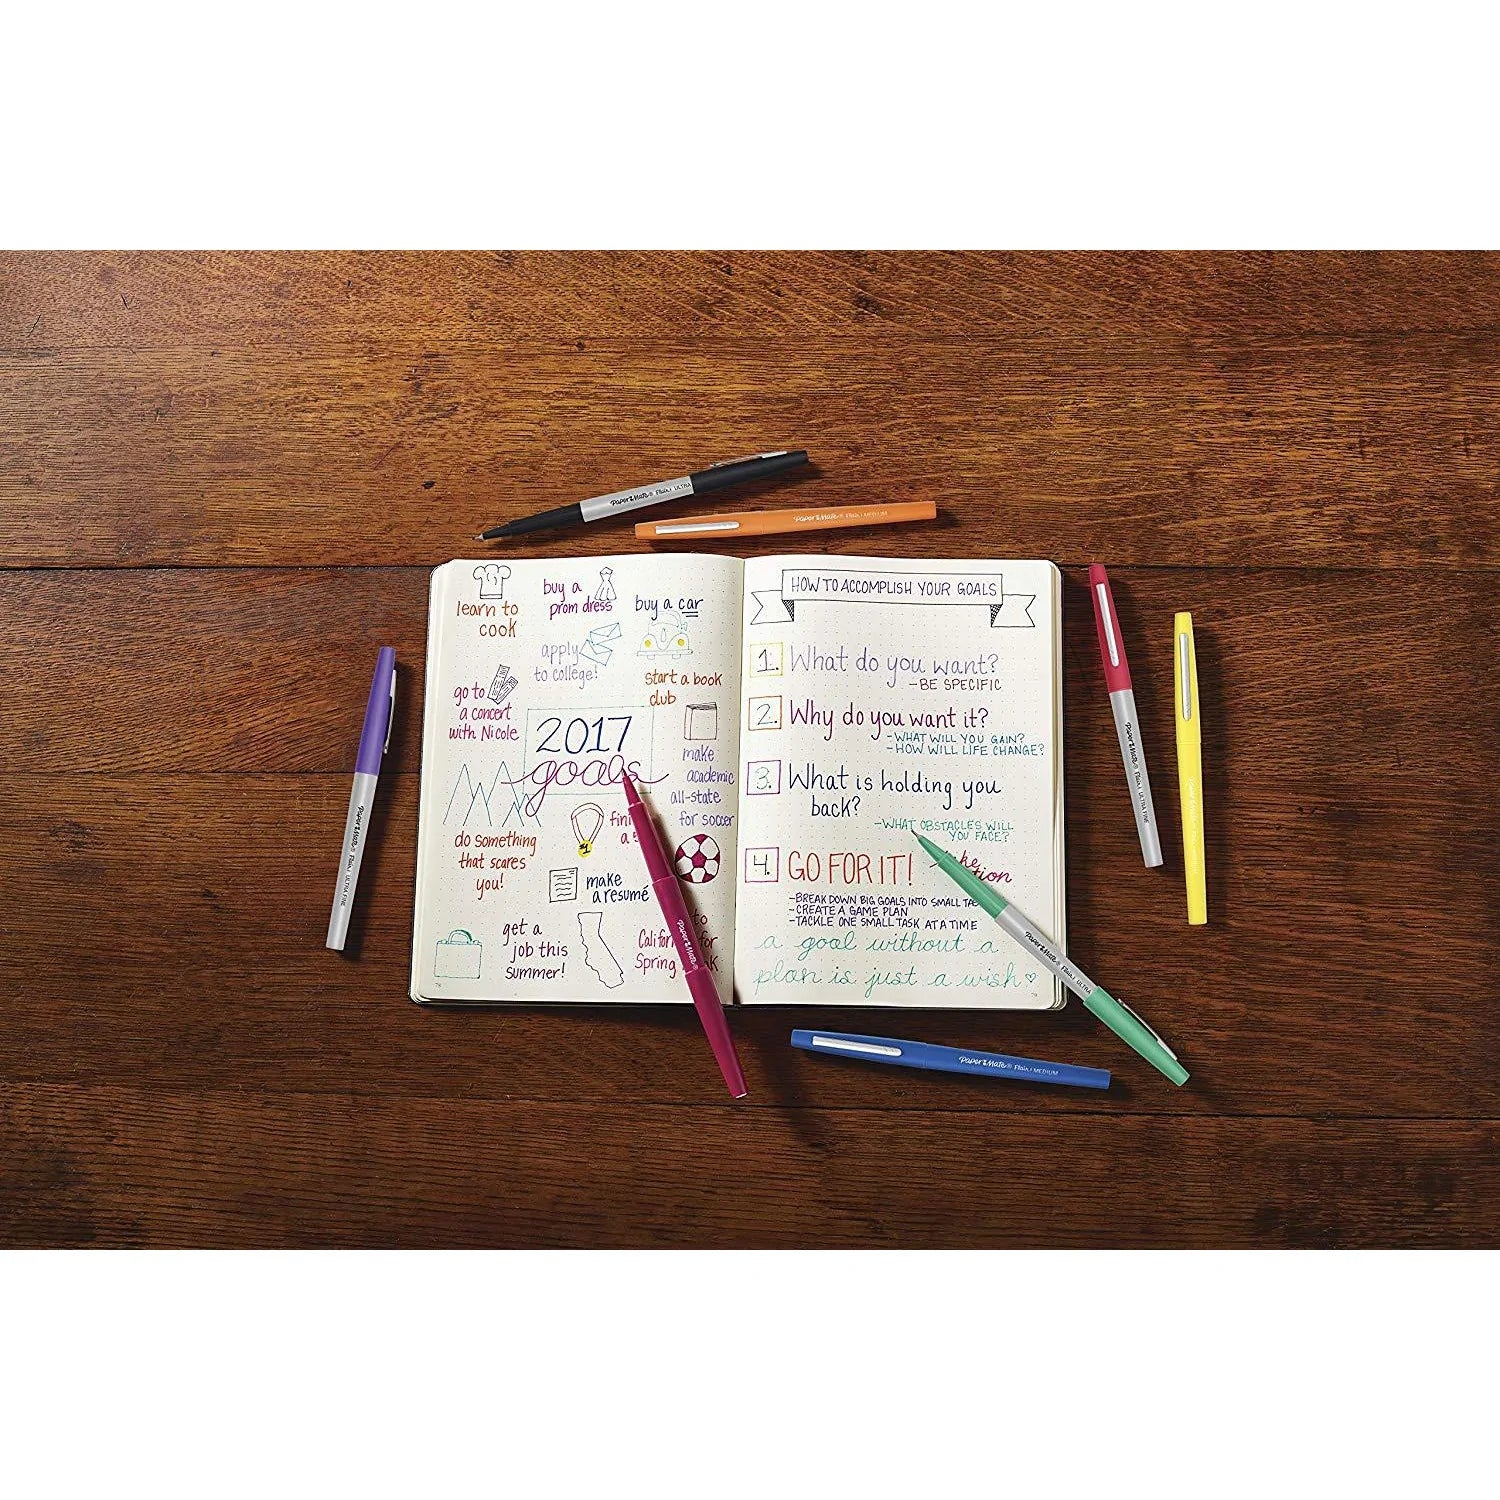 Paper Mate® Flair ULTRA
Paper Mate® Flair MEDIUM
learn to
cook
buy a
prom dress
buy a car
apply
to college!
go to
a concert
with Nicole
start a book
club
2017
goals
make
academic
all-state
for soccer
do something
that scares
you!
#1
a
make
a resumé
get a
job this
summer!
to
for
Spring
78
HOW TO ACCOMPLISH YOUR GOALS
1. What do you want?
-BE SPECIFIC
2. Why do you want it?
-WHAT WILL YOU GAIN?
-HOW WILL LIFE CHANGE?
3. What is holding you
back?
-WHAT OBSTACLES WILL
YOU FACE?
4. GO FOR IT!
-BREAK DOWN BIG GOALS INTO SMALL
-CREATE A GAME PLAN
-TACKLE ONE SMALL TASK AT A TIME
a goal without a
plan is just a wish ♡
79
Paper Mate® Flair ULTRA FINE
Paper Mate® Flair ULTRA FINE
Paper Mate®
Paper Mate® Flair ULTRA
Paper Mate® Flair MEDIUM